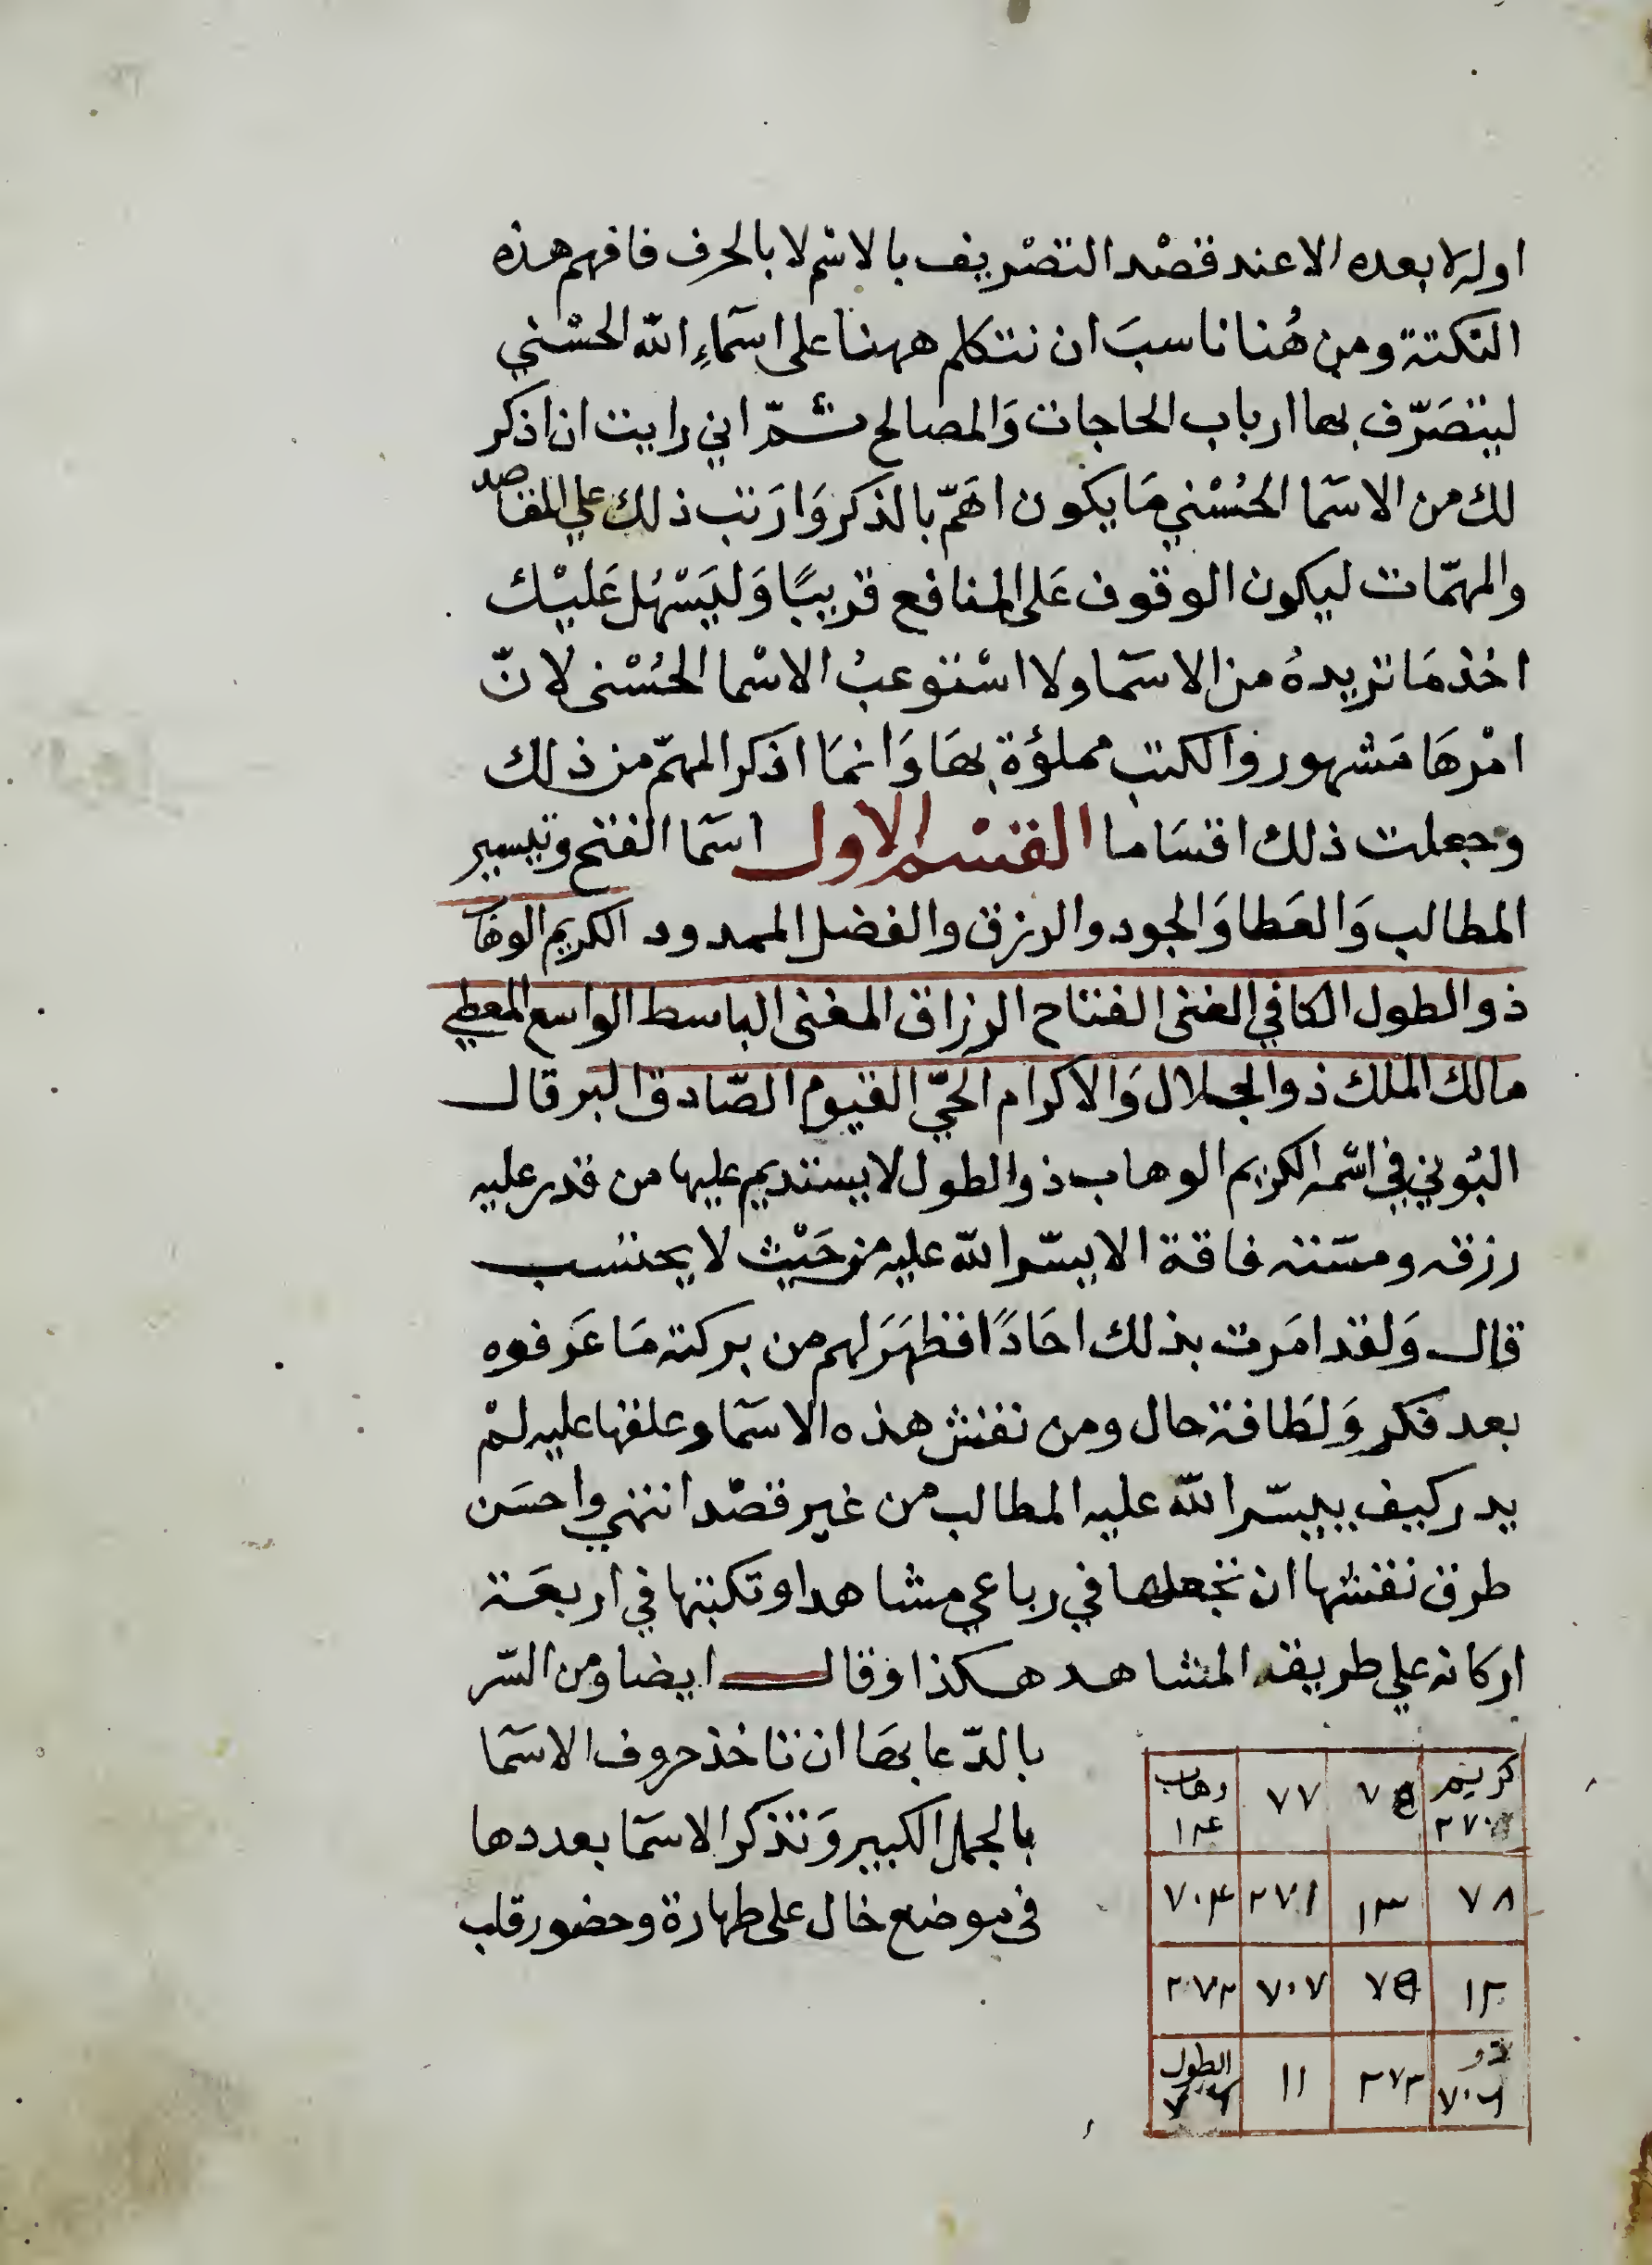 اوله لا بعده الا عند قصْد التصْريف بالاسْم لا بالحرف فافهم هذه
النكتة ومن هُنا ناسبَ ان نتكلم ههنا على اسمآءِ الله الحسْني
ليتصَرّف بها ارباب الحاجات وَالمصالح ثمّ اني رايت ان اذكر
لك من الاسمآ الحُسْني مَا يكون اهَمّ بالذكر وَارَتب ذلك علي المقاصد
والمهمّات ليكون الوقوف عَلى المنافع قريبًا وَليَسْهُل عَليْك
اخذ مَا تريدهُ من الاسمآ ولا اسْتوعبُ الاسْما الحُسْنى لانّ
امْرهَا مَشهور والكتب مملؤة بهَا وَانمَا اذكر المهمّ من ذلك
وجعلت ذلك اقسَاما القسْم الاول اسمآ الفتح وتيسير
المطالب وَالعَطا وَالجود والرزق والفضل الممدود الكريم الوهاب
ذو الطول الكافي الغنى الفتاح الرزاق المغنى الباسط الواسع المعطي
مالك الملك ذو الجلال وَالاكرام الحيّ القيوم الصّادق البر قال
البُوني في اسْمه الكريم الوهاب ذو الطول لا يستديم عليها من قدر عليه
رزقه ومسّته فاقة الا يسّر الله عليه من حَيْث لا يحتسب
قال وَلقد امَرت بذلك احَادًا فظهَرَ لهم من بركته مَا عَرفوه
بعد فكر وَلطَافة حال ومن نقش هذه الاسمآ وعلقها عليه لمْ
يدر كيف ييسّر الله عليه المطالب من غير قصْد انتهي واحسَن
طرق نقشها ان تجعلها في رباعي مشاهدا وتكتبها في اربعَة
اركانه علي طريقه المشاهد هكذا وقال ايضا ومن السّر
بالدّعا بهَا ان تاخذ حروف الاسمآ
بالجمل الكبير وَتذكر الاسمآ بعددها
في موضع خال على طهارة وحضور قلب
كريم ٢٧٠ ٧٥ ٧٧ وهاب ١٤
٧٨ ١٣ ٢٧١ ٧٠٤
١٢ ٧٥ ٧٠٧ ٢٧٢
ذو ٧٠٦ ٢٧٣ ١١ الطول